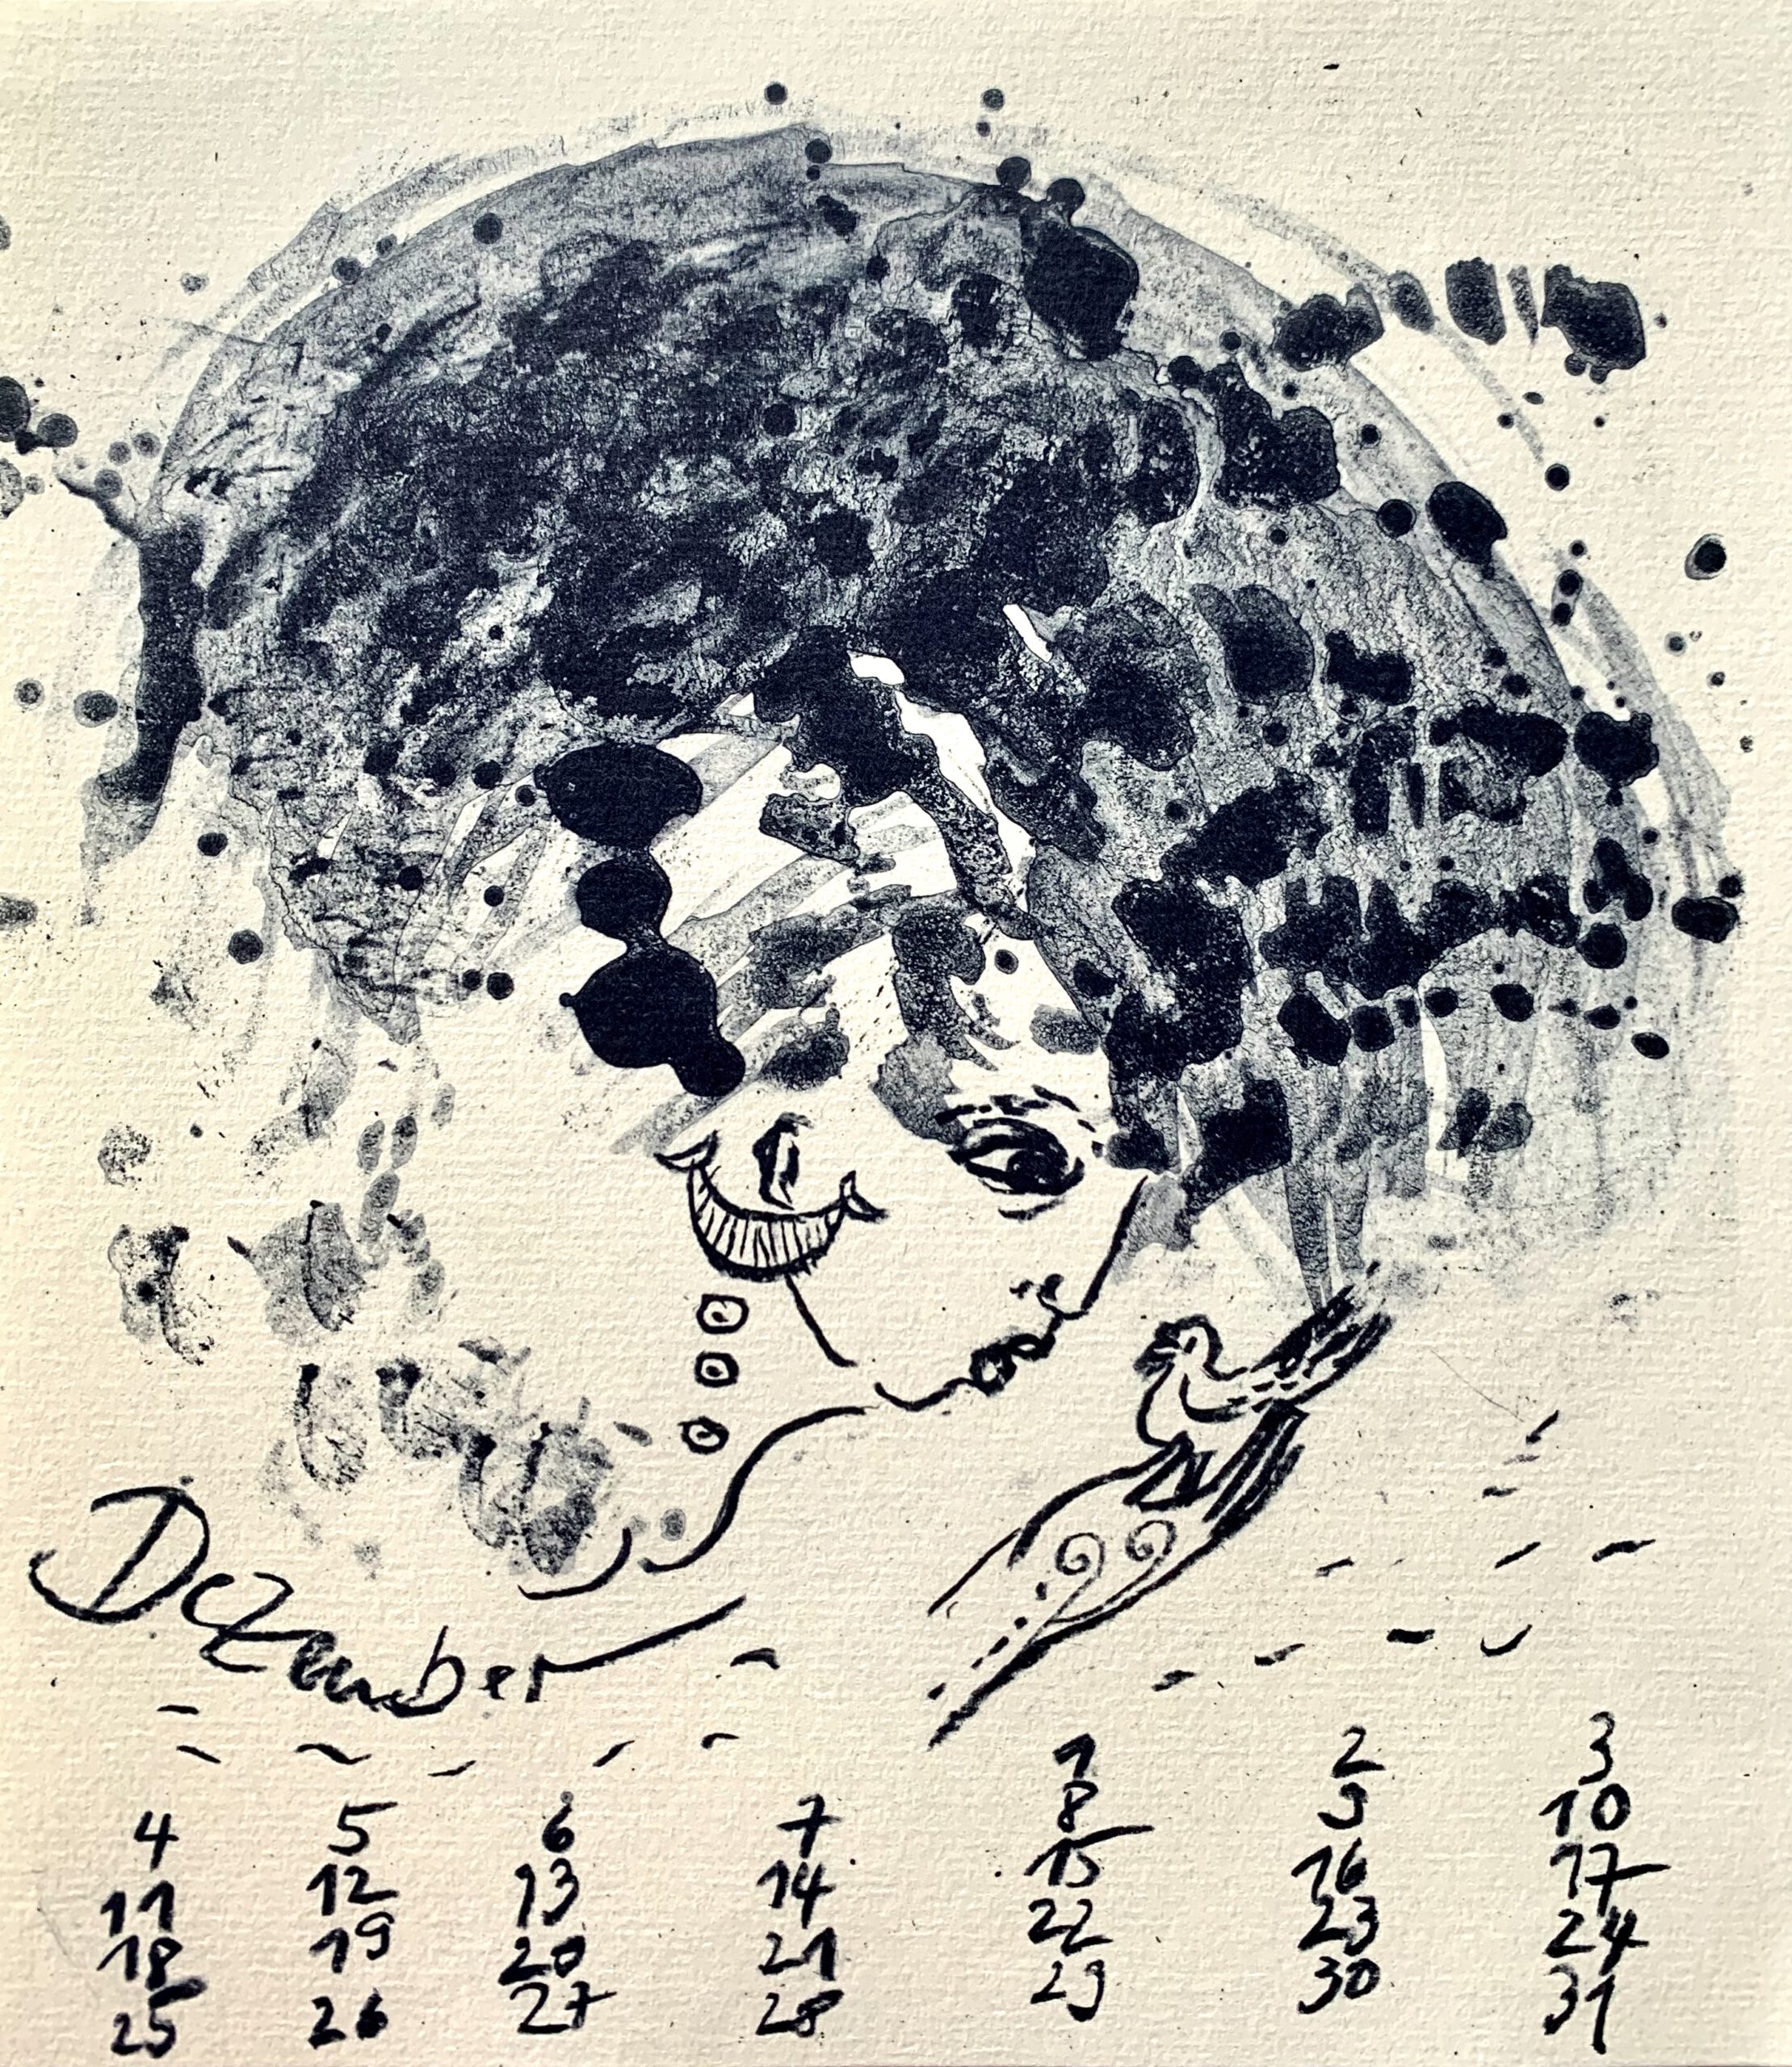 Dezember
1 2 3
4 5 6 7 8 9 10
11 12 13 14 15 16 17
18 19 20 21 22 23 24
25 26 27 28 29 30 31